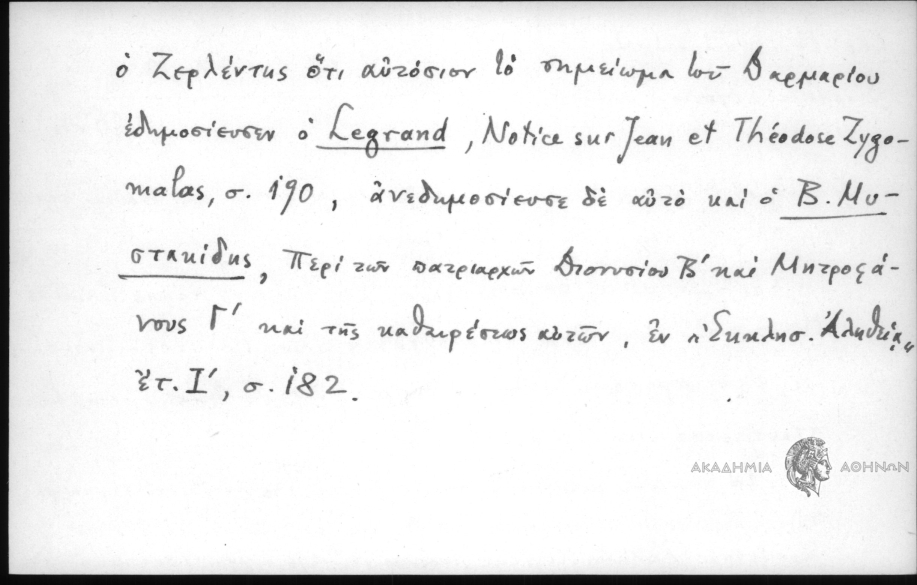 ὁ Ζερλέντης ὅτι αὐτόσιον τὸ σημείωμα τοῦ Δαρμαρίου
ἐδημοσίευσεν ὁ Legrand, Notice sur Jean et Théodose Zygo-
malas, σ. 190, ἀνεδημοσίευσε δὲ αὐτὸ καὶ ὁ Β. Μυ-
στακίδης, Περὶ τῶν πατριαρχῶν Διονυσίου Β' καὶ Μητροφά-
νους Γ' καὶ τῆς καθαιρέσεως αὐτῶν, ἐν "Ἐκκλησ. Ἀληθείᾳ"
ἔτ. Ι', σ. 182.
ΑΚΑΔΗΜΙΑ ΑΘΗΝΩΝ